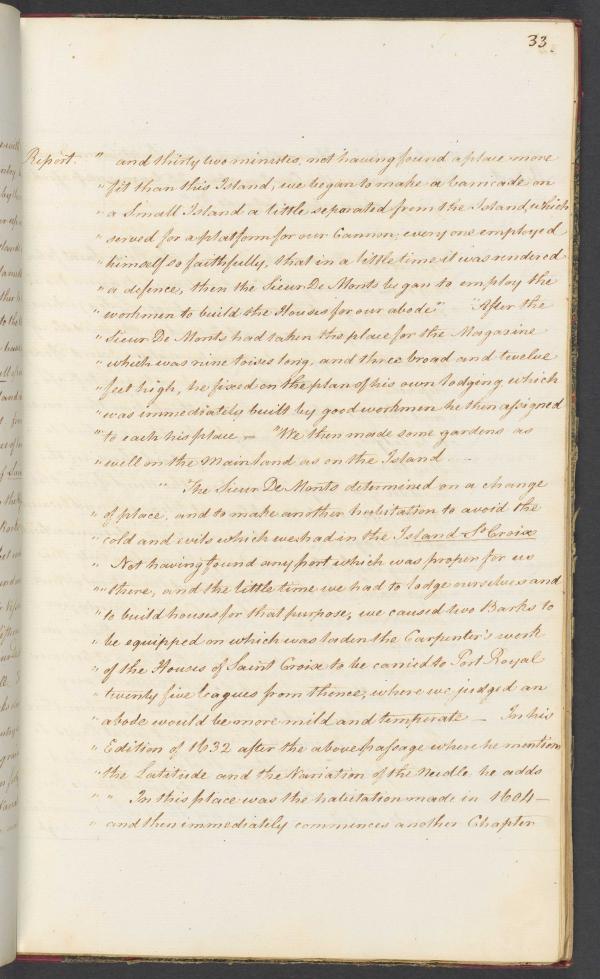 33
Report. " and thirty two minutes, not having found a place more
" fit than this Island, we began to make a barricade on
" a Small Island a little separated from the Island, which
" served for a platform for our Cannon; every one employed
" himself so faithfully, that in a little time it was rendered
" a defence, then the Sieur De Monts began to employ the
" workmen to build the Houses for our abode" "After the
" Sieur De Monts had taken the place for the Magazine
" which was nine toises long, and three broad and twelve
" feet high, he fixed on the plan of his own lodging which
" was immediately built by good workmen he then assigned
" to each his place — "We then made some gardens as
" well on the Mainland as on the Island —
" The Sieur De Monts determined on a change
" of place, and to make another habitation to avoid the
" cold and evils which we had in the Island St Croix
" Not having found any port which was proper for us
" " there, and the little time we had to lodge ourselves and
" to build houses for that purpose, we caused two Barks to
" be equipped on which was laden the Carpenter's work
" of the Houses of Saint Croix to be carried to Port Royal
" twenty five leagues from thence, where we judged an
" abode would be more mild and temperate — In his
" Edition of 1632 after the above passage where he mentions
" the Latitude and the Variation of the Needle he adds
" " In this place was the habitation made in 1604 —
" and then immediately commences another Chapter